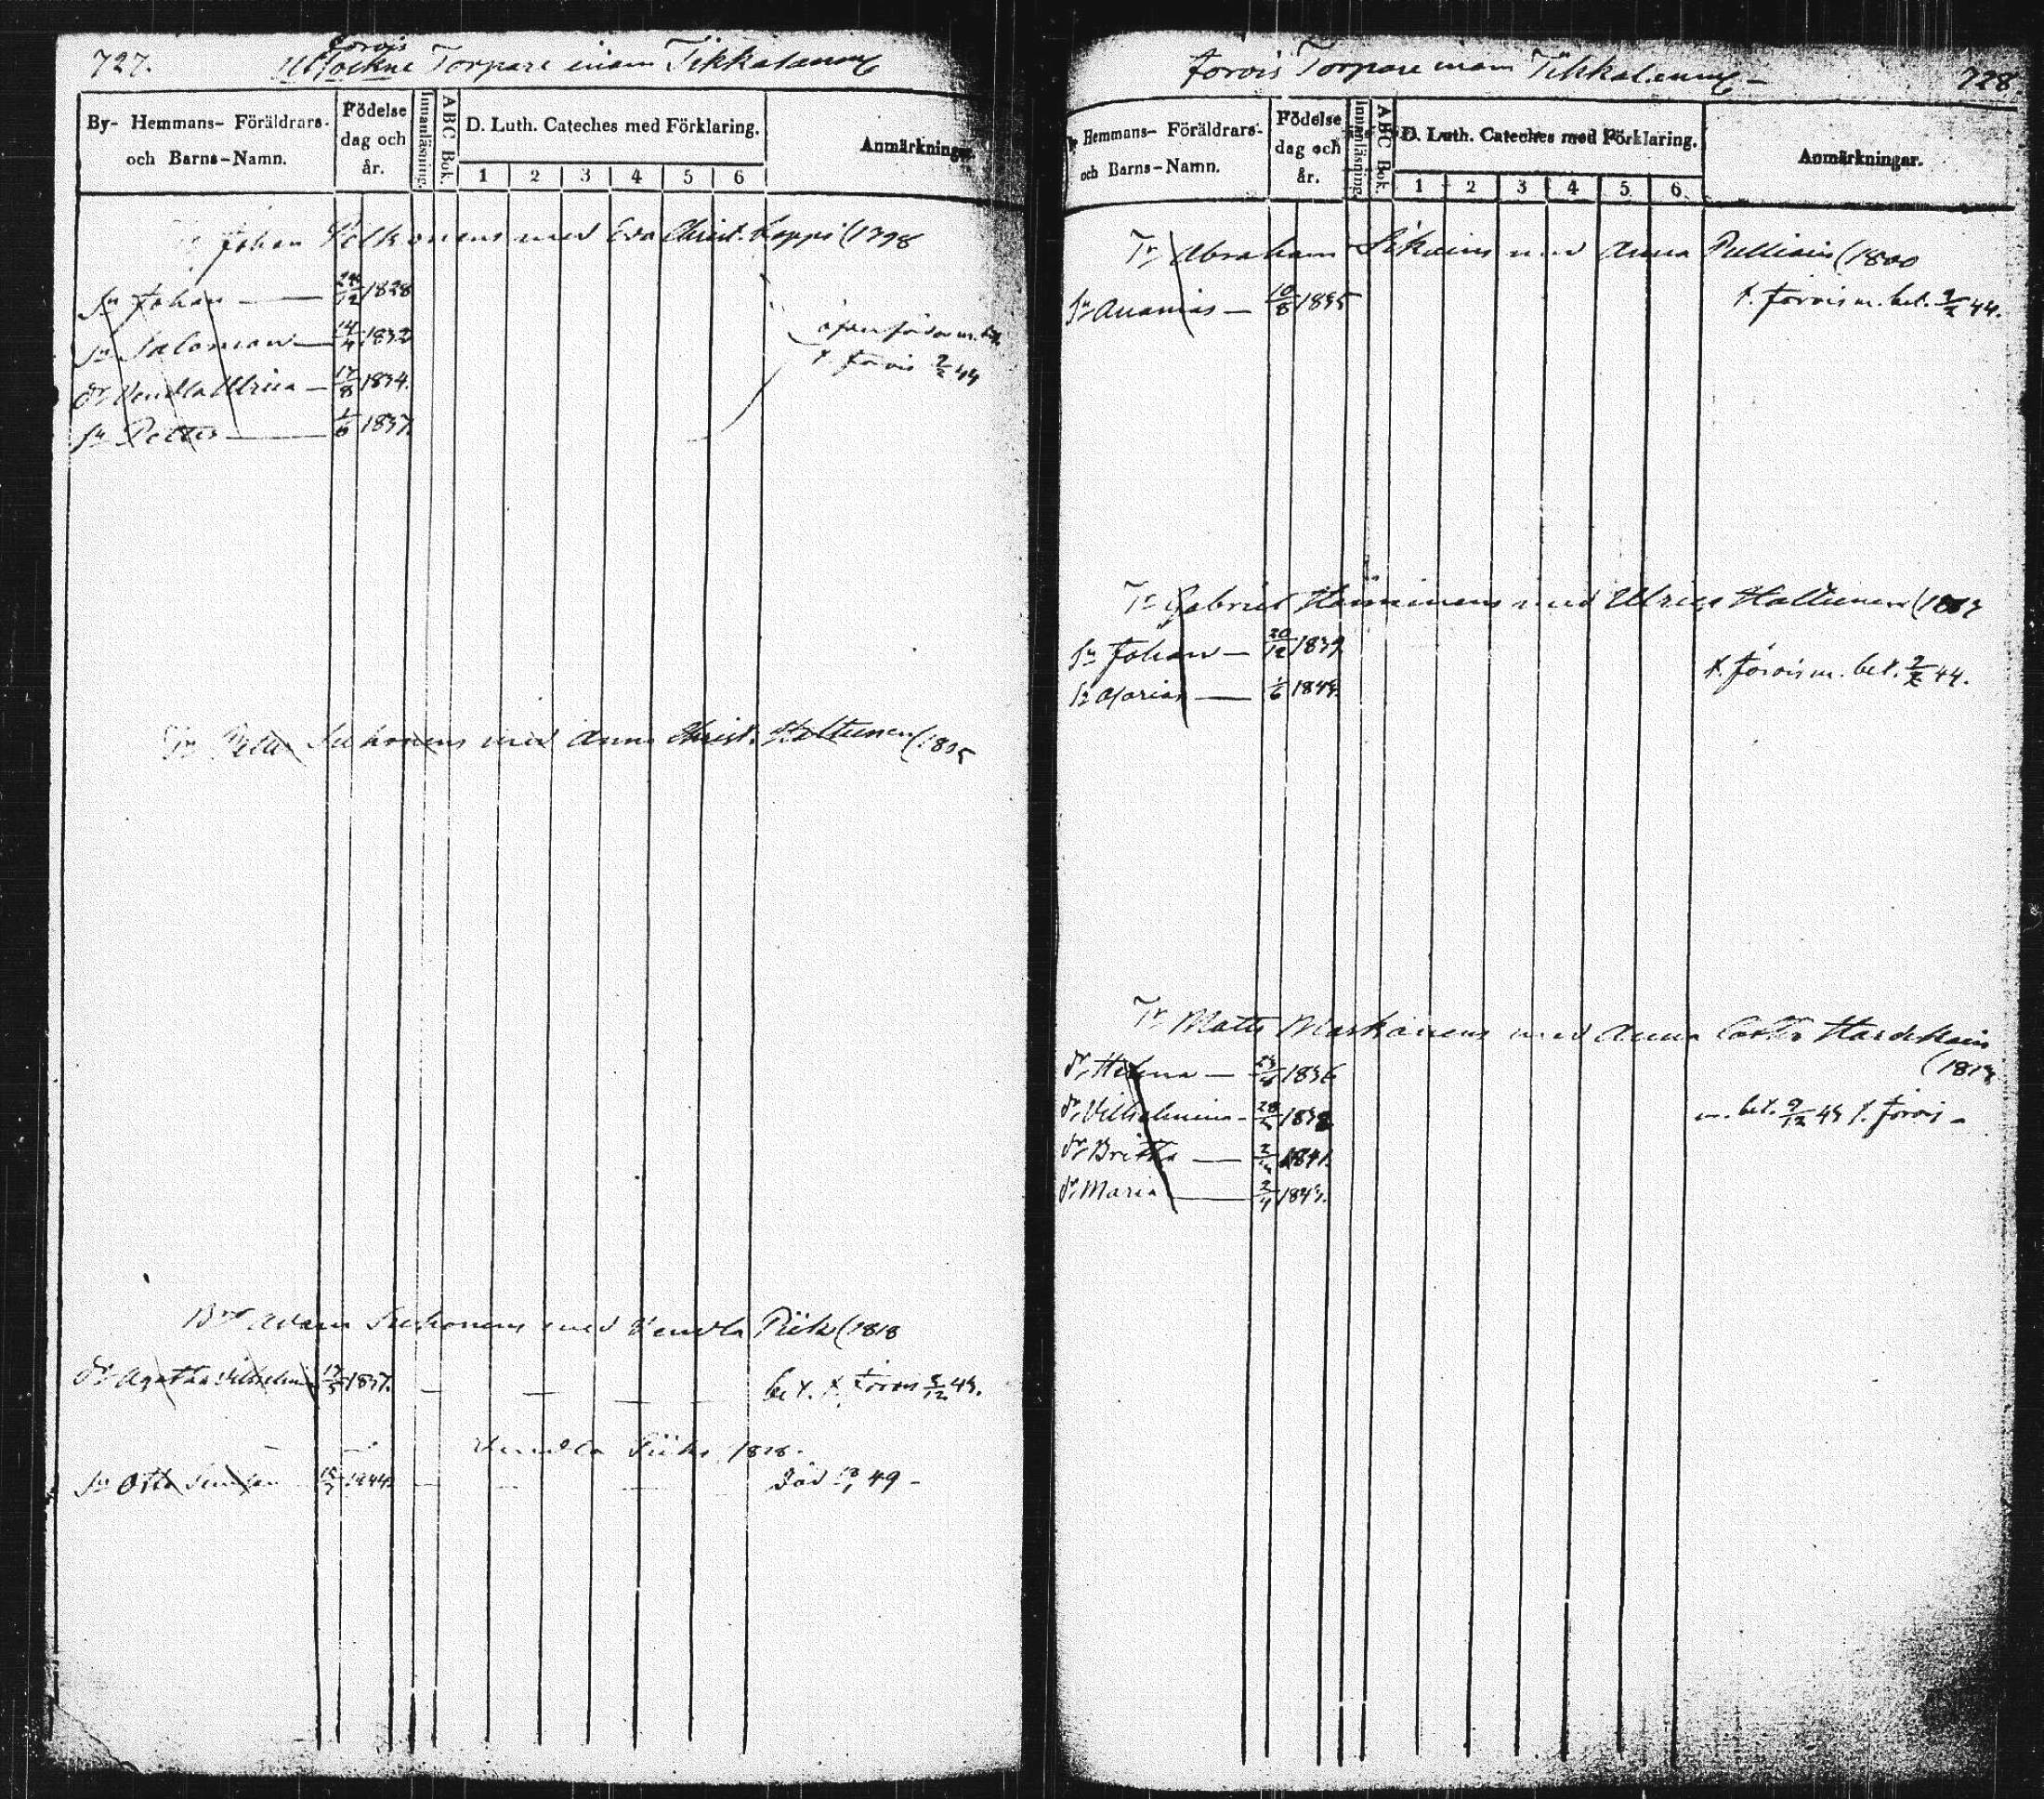 727.
Jorois
Torpare inom Tikkalanmk
By- Hemmans- Föräldrars- och Barns-Namn.
Födelse dag och år.
Innanläsning.
ABC Bok.
D. Luth. Cateches med Förklaring.
1 2 3 4 5 6
Anmärkningar.
Johan med Eva Christ. Loppi (1798
Sn Johan — 24/12 1828
Sn Salomon — 14/4 1832
t. Jorois 2/2 44
dr Vendla Ulrica — 17/8 1834.
Sn Petter — 1/6 1837.
Tr Petter Suhonens med Anna Christ. Haltunen (1805
Adam Suhonens med Vendla Piik (1818
dr Agatha Vilhelmina 1837. — — — — bet. t. Jorois 43.
Vendla Piiks, 1818.
Sn Otto 1844. — — — — Död 49 —
Jorois Torpare inom Tikkalanmk —
728.
Hemmans- Föräldrars- och Barns-Namn.
Födelse dag och år.
Innanläsning.
ABC Bok.
D. Luth. Cateches med Förklaring.
1 2 3 4 5 6
Anmärkningar.
Tr Abraham med Anna Pulliain (1800
Sn Ananias — 10/8 1835
t. Jorois m. bet. 2/2 44.
Tr Gabriel Hänninens med Ulrica Haltunen
Sn Johan — 20/12 1839.
t. Jorois m. bet. 2/2 44.
1/6 1843.
Tr Matts Maskonens med Anna Cath.
dr Helena — 1836
dr Vilhelmina — 1838
m. bet. 9/12 43 t. Jorois —
dr Britha — 1841.
dr Maria — 2/4 1843.